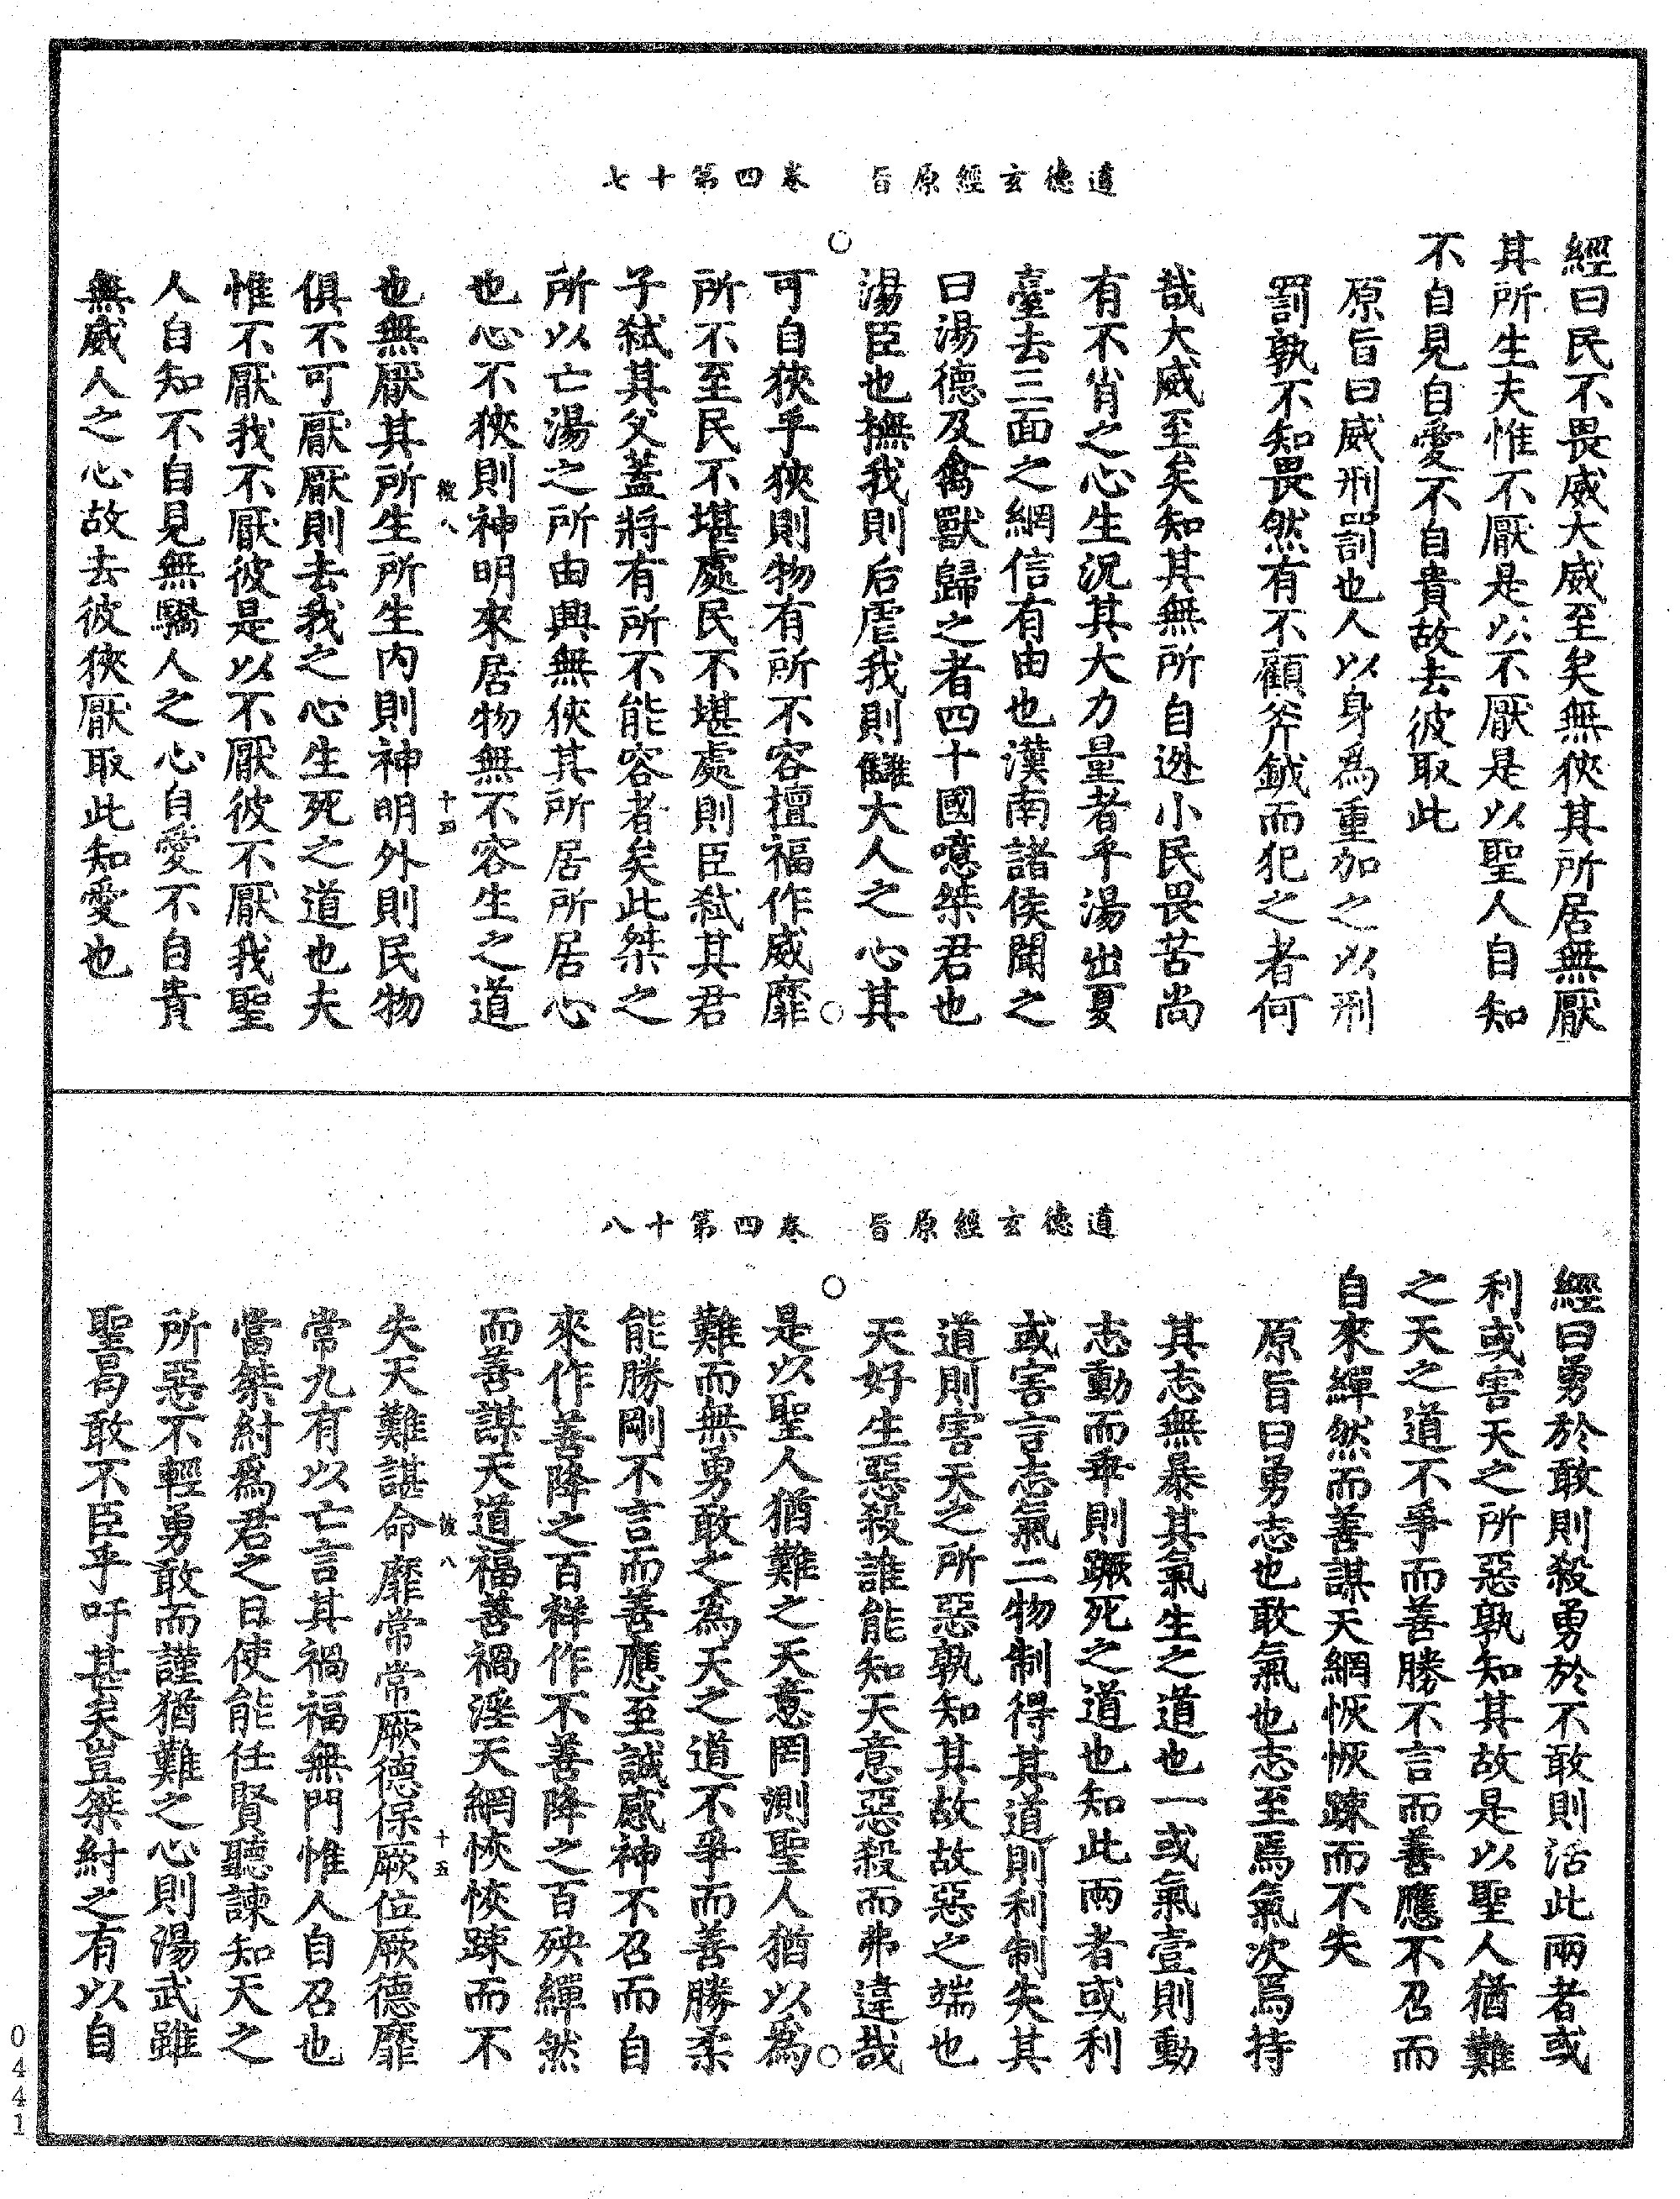 道德玄經原旨　卷四第十七
經曰民不畏威大威至矣無狹其所居無厭
其所生夫惟不厭是以不厭是以聖人自知
不自見自愛不自貴故去彼取此
原旨曰威刑罰也人以身為重加之以刑
罰孰不知畏然有不顧斧鉞而犯之者何
哉大威至矣知其無所自逃小民畏苦尚
有不肖之心生況其大力量者乎湯出夏
臺去三面之網信有由也漢南諸侯聞之
曰湯德及禽獸歸之者四十國噫桀君也
湯臣也撫我則后虐我則讎大人之心其
可自狹乎狹則物有所不容擅福作威靡
所不至民不堪處民不堪處則臣弒其君
子弒其父蓋將有所不能容者矣此桀之
所以亡湯之所由興無狹其所居所居心
也心不狹則神明來居物無不容生之道
彼八　十四
也無厭其所生所生內則神明外則民物
俱不可厭厭則去我之心生死之道也夫
惟不厭我不厭彼是以不厭彼不厭我聖
人自知不自見無驕人之心自愛不自貴
無威人之心故去彼狹厭取此知愛也
道德玄經原旨　卷四第十八
經曰勇於敢則殺勇於不敢則活此兩者或
利或害天之所惡孰知其故是以聖人猶難
之天之道不爭而善勝不言而善應不召而
自來繟然而善謀天網恢恢踈而不失
原旨曰勇志也敢氣也志至焉氣次焉持
其志無暴其氣生之道也一或氣壹則動
志動而乖則蹶死之道也知此兩者或利
或害言志氣二物制得其道則利制失其
道則害天之所惡孰知其故故惡之端也
天好生惡殺誰能知天意惡殺而弗違哉
是以聖人猶難之天意罔測聖人猶以為
難而無勇敢之為天之道不爭而善勝柔
能勝剛不言而善應至誠感神不召而自
來作善降之百祥作不善降之百殃繟然
而善謀天道福善禍淫天網恢恢踈而不
彼八　十五
失天難諶命靡常常厥德保厥位厥德靡
常九有以亡言其禍福無門惟人自召也
當桀紂為君之日使能任賢聽諫知天之
所惡不輕勇敢而謹猶難之心則湯武雖
聖曷敢不臣乎吁甚矣豈桀紂之有以自
0441